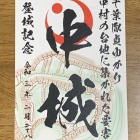 千葉常貞ゆかり
中村の台地に築かれた要害
中城
登城記念
令和三年二月二十八